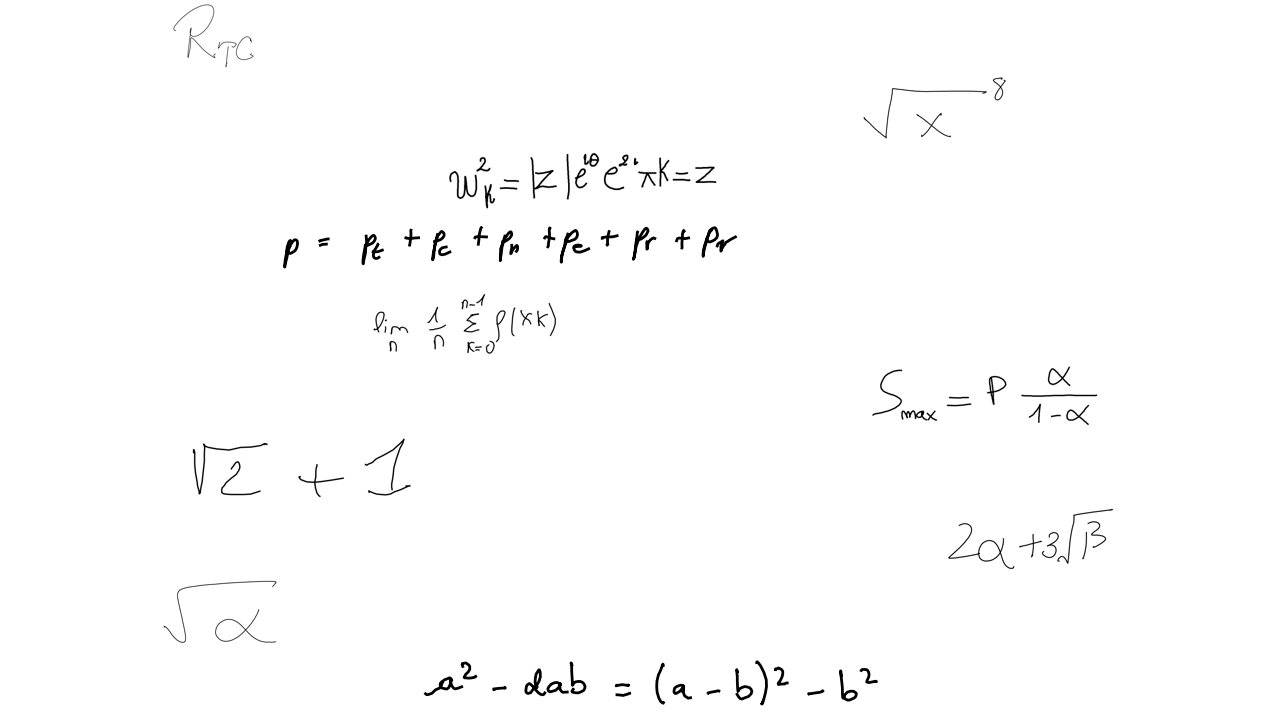 R_{TC}
\sqrt{x}^8
w_k^2 = |z| e^{iθ} e^{2i} πk = z
p = p_t + p_c + p_n + p_e + p_r + p_r
\lim_n \frac{1}{n} \sum_{k=0}^{n-1} ρ(xk)
S_{max} = P \frac{α}{1-α}
\sqrt{2} + 1
2α + 3\sqrt{β}
\sqrt{α}
a^2 - dab = (a - b)^2 - b^2